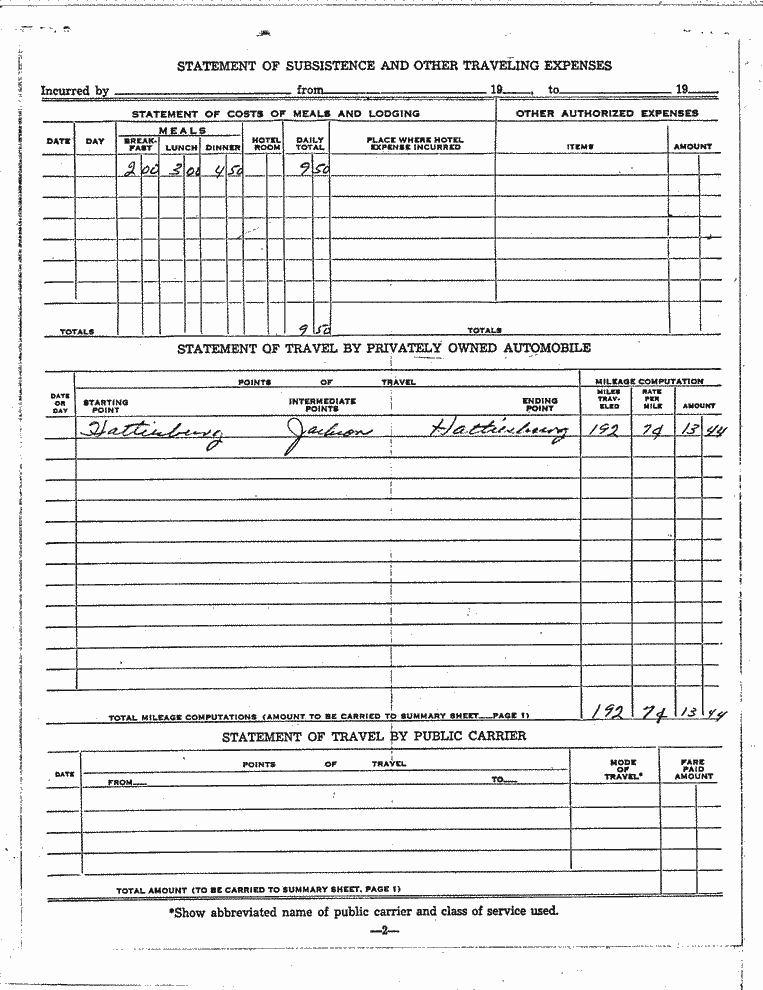 STATEMENT OF SUBSISTENCE AND OTHER TRAVELING EXPENSES
Incurred by from 19 , to 19
STATEMENT OF COSTS OF MEALS AND LODGING OTHER AUTHORIZED EXPENSES
DATE DAY MEALS HOTEL ROOM DAILY TOTAL PLACE WHERE HOTEL EXPENSE INCURRED ITEMS AMOUNT
BREAK-FAST LUNCH DINNER
2 00 3 00 4 50 9 50
TOTALS 9 50 TOTALS
STATEMENT OF TRAVEL BY PRIVATELY OWNED AUTOMOBILE
POINTS OF TRAVEL MILEAGE COMPUTATION
DATE OR DAY STARTING POINT INTERMEDIATE POINTS ENDING POINT MILES TRAV-ELED RATE PER MILE AMOUNT
Hattiesburg Jackson Hattiesburg 192 7¢ 13 44
TOTAL MILEAGE COMPUTATIONS (AMOUNT TO BE CARRIED TO SUMMARY SHEET—PAGE 1) 192 7¢ 13 44
STATEMENT OF TRAVEL BY PUBLIC CARRIER
DATE POINTS OF TRAVEL MODE OF TRAVEL* FARE PAID AMOUNT
FROM— TO—
TOTAL AMOUNT (TO BE CARRIED TO SUMMARY SHEET, PAGE 1)
*Show abbreviated name of public carrier and class of service used.
—2—